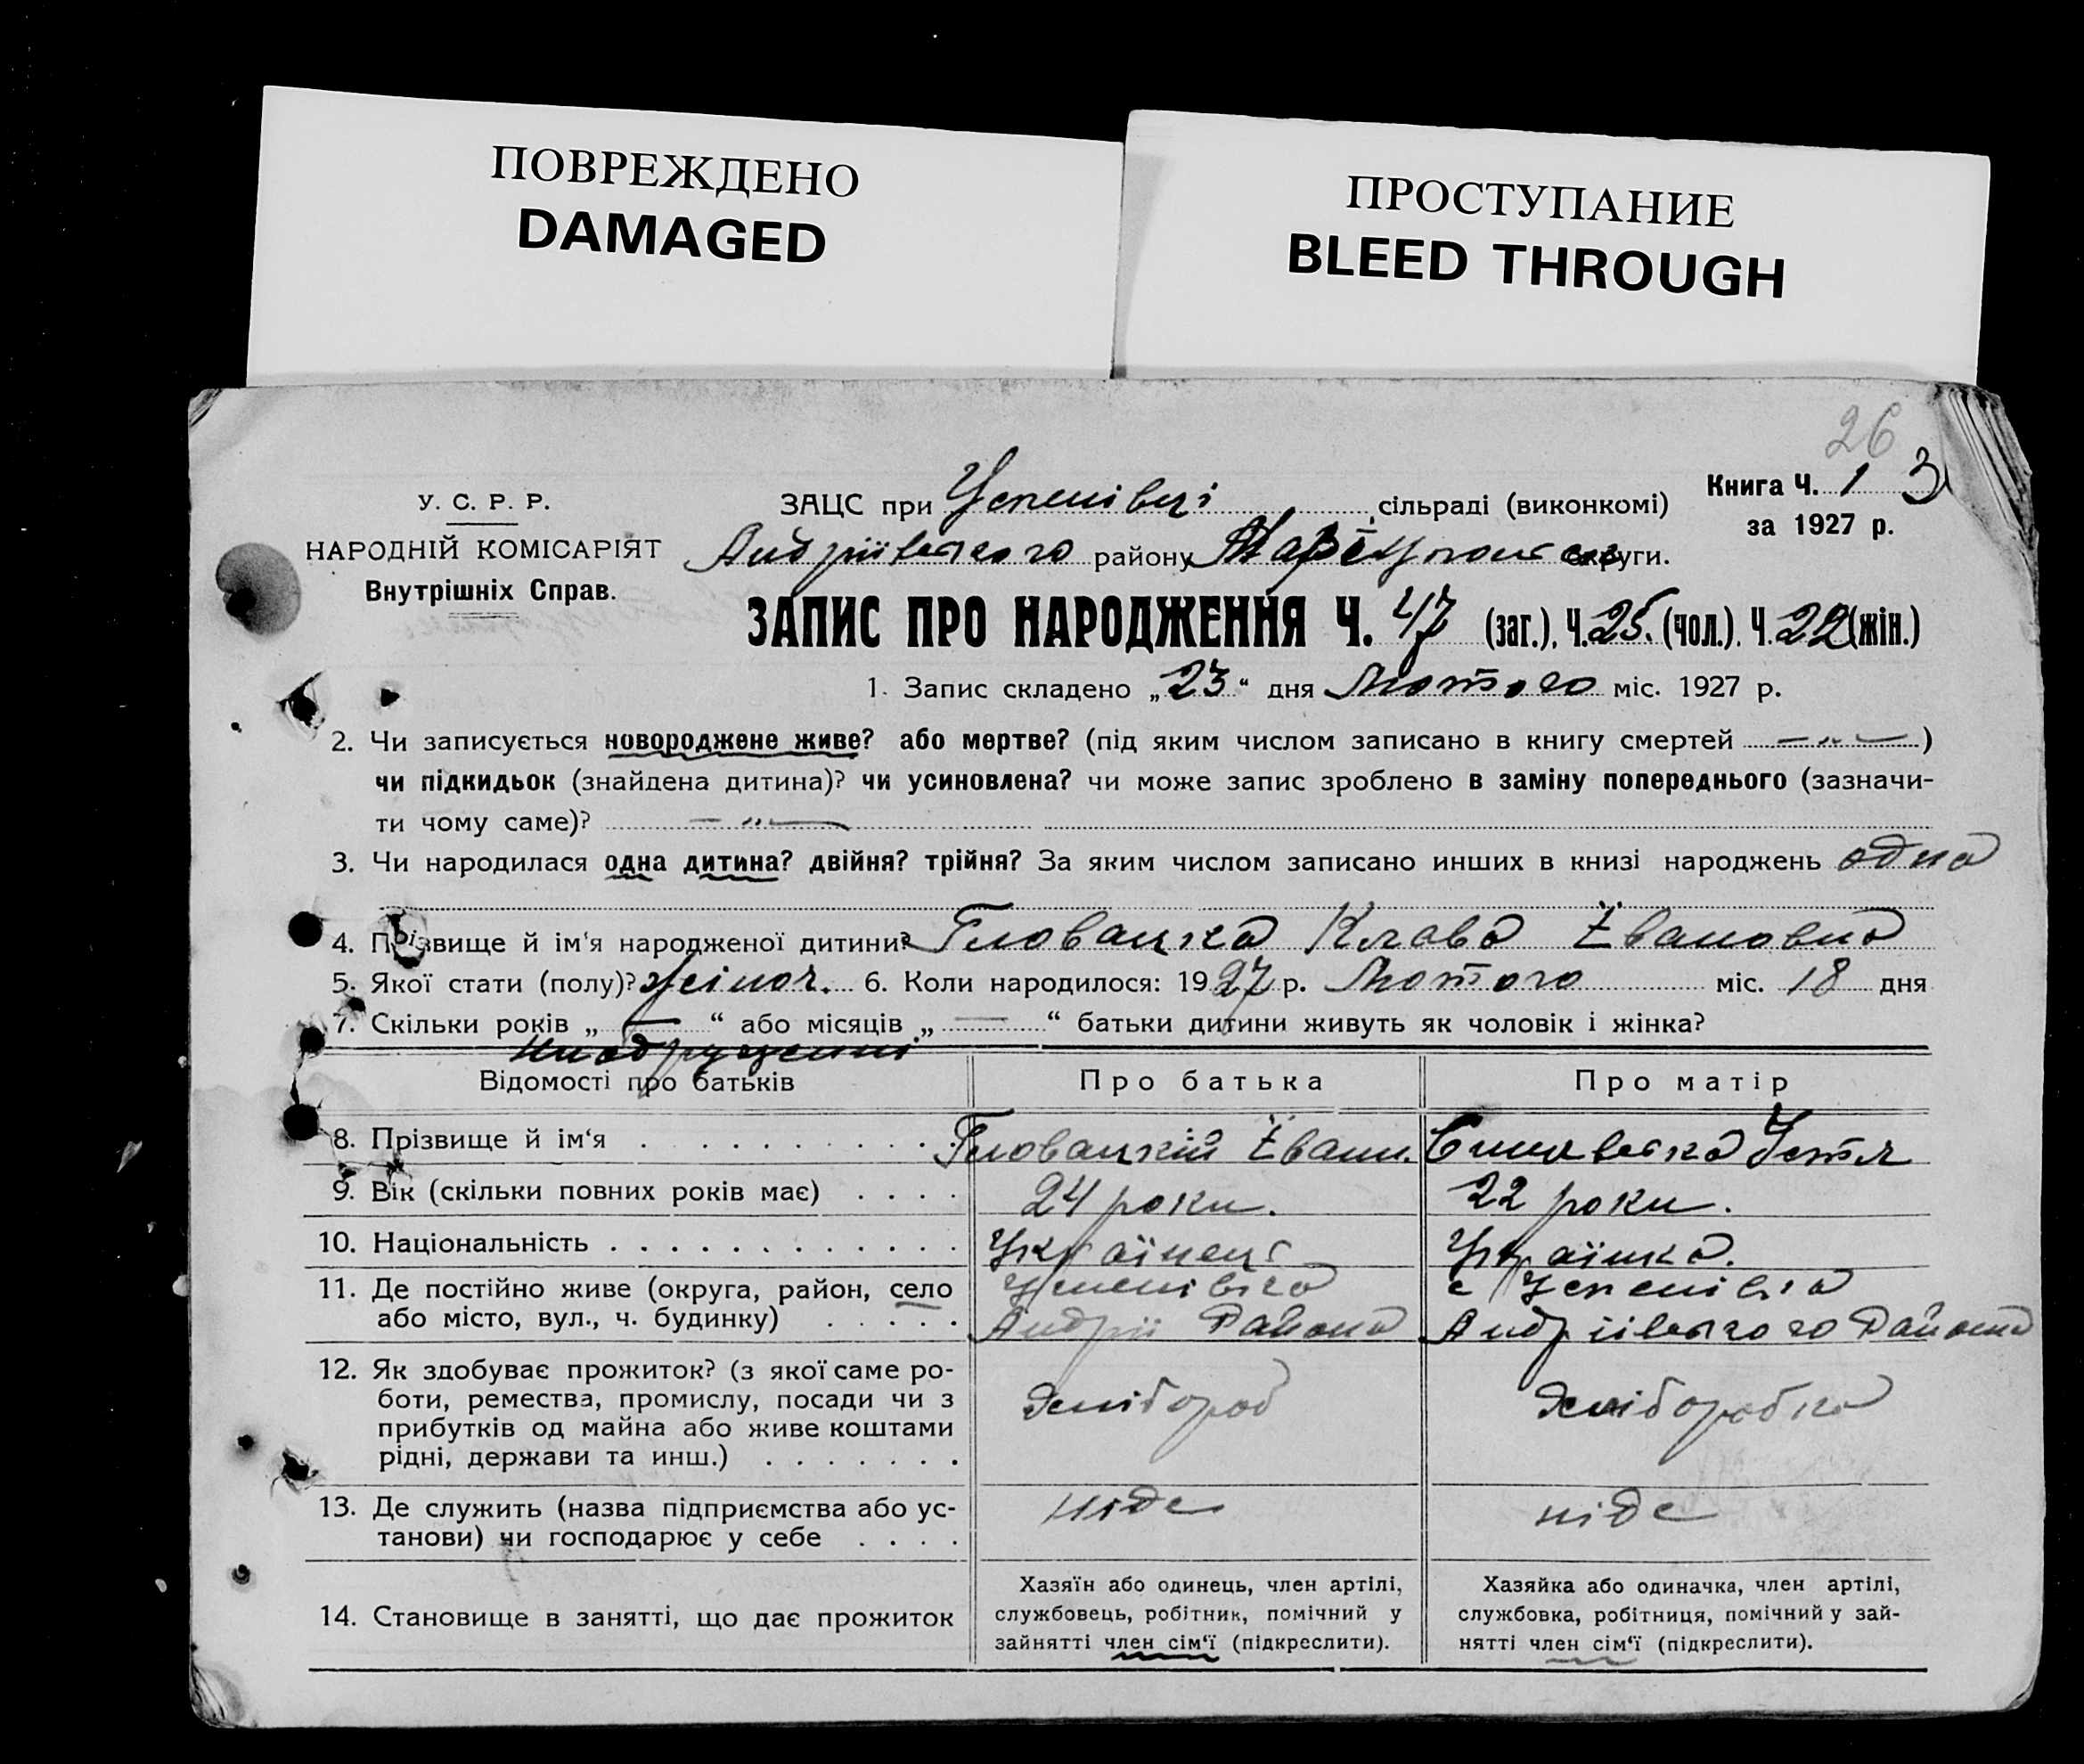 ПОВРЕЖДЕНО
DAMAGED
ПРОСТУПАНИЕ
BLEED THROUGH
26
У. С. Р. Р.
НАРОДНІЙ КОМІСАРІЯТ
Внутрішніх Справ.
ЗАЦС при Успенівці сільраді (виконкомі)
Андріївського району округи.
Книга Ч. 1 3
за 1927 р.
ЗАПИС ПРО НАРОДЖЕННЯ Ч. 47 (заг.), Ч. 25. (чол.). Ч. 22 (жін.)
1. Запис складено „23“ дня Лютого міс. 1927 р.
2. Чи записується новороджене живе? або мертве? (під яким числом записано в книгу смертей —„—)
чи підкидьок (знайдена дитина)? чи усиновлена? чи може запис зроблено в заміну попереднього (зазначи-
ти чому саме)? —„—
3. Чи народилася одна дитина? двійня? трійня? За яким числом записано инших в книзі народжень одна
4. Прізвище й ім‘я народженої дитини? Гловацка Клава Івановна
5. Якої стати (полу)? жіноч. 6. Коли народилося: 1927 р. Лютого міс. 18 дня
7. Скільки років „ — “ або місяців „ — “ батьки дитини живуть як чоловік і жінка?
Відомості про батьків
Про батька
Про матір
8. Прізвище й ім‘я . . . . . . . . . . Гловацкій Іван. Устя
9. Вік (скільки повних років має) . . . . 24 роки. 22 роки.
10. Національність . . . . . . . . . . . . . Українець Українка.
11. Де постійно живе (округа, район, село
або місто, вул., ч. будинку) . . . . .
Успенівка
Андрії Района
с Успенівка
Андріївського Района
12. Як здобуває прожиток? (з якої саме ро-
боти, ремества, промислу, посади чи з
прибутків од майна або живе коштами
рідні, держави та инш.) . . . . . . .
хлібороб
хліборобка
13. Де служить (назва підприємства або ус-
танови) чи господарює у себе . . . .
ніде
ніде
14. Становище в занятті, що дає прожиток
Хазяїн або одинець, член артілі,
службовець, робітник, помічний у
зайнятті член сім‘ї (підкреслити).
Хазяйка або одиначка, член артілі,
службовка, робітниця, помічний у зай-
нятті член сім‘ї (підкреслити).